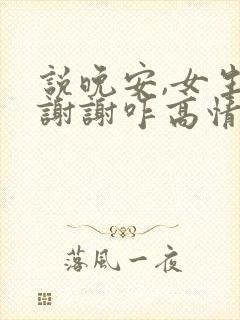 説晚安,女生
謝謝咋高情
落風一夜